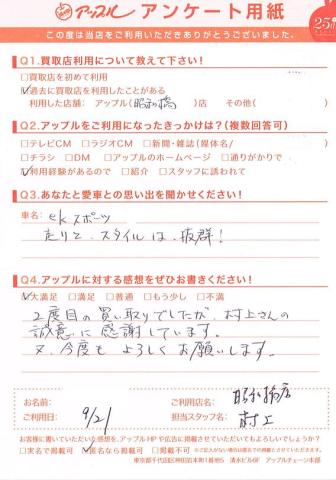 アップル アンケート用紙
25th
この度は当店をご利用いただきありがとうございました。
Q1.買取店利用について教えて下さい!
□買取店を初めて利用
☑過去に買取店を利用したことがある
利用した店舗: アップル(昭和橋)店 その他( )
Q2.アップルをご利用になったきっかけは?(複数回答可)
□テレビCM □ラジオCM □新聞・雑誌(媒体名/ )
□チラシ □DM □アップルのホームページ □通りがかりで
☑利用経験があるので □紹介 □スタッフに誘われて
Q3.あなたと愛車との思い出を聞かせください!
車名: ekスポーツ
走りと、スタイルは、抜群!
Q4.アップルに対する感想をぜひお書きください!
☑大満足 □満足 □普通 □もう少し □不満
2度目の買い取りでしたが、村上さんの
誠意に感謝しています。
又、今度も よろしくお願いします。
お名前: ご利用店名: 昭和橋店
ご利用日: 9/21 担当スタッフ名: 村上
お客様に書いていただいた感想を、アップルHPや広告に掲載させていただいてもよろしいでしょうか?
□実名で掲載可 ☑匿名なら掲載可 □掲載不可 ※ご記入がない場合は匿名での掲載とさせていただきます。
東京都千代田区神田岩本町1番地5 清水ビル6F アップルチェーン本部